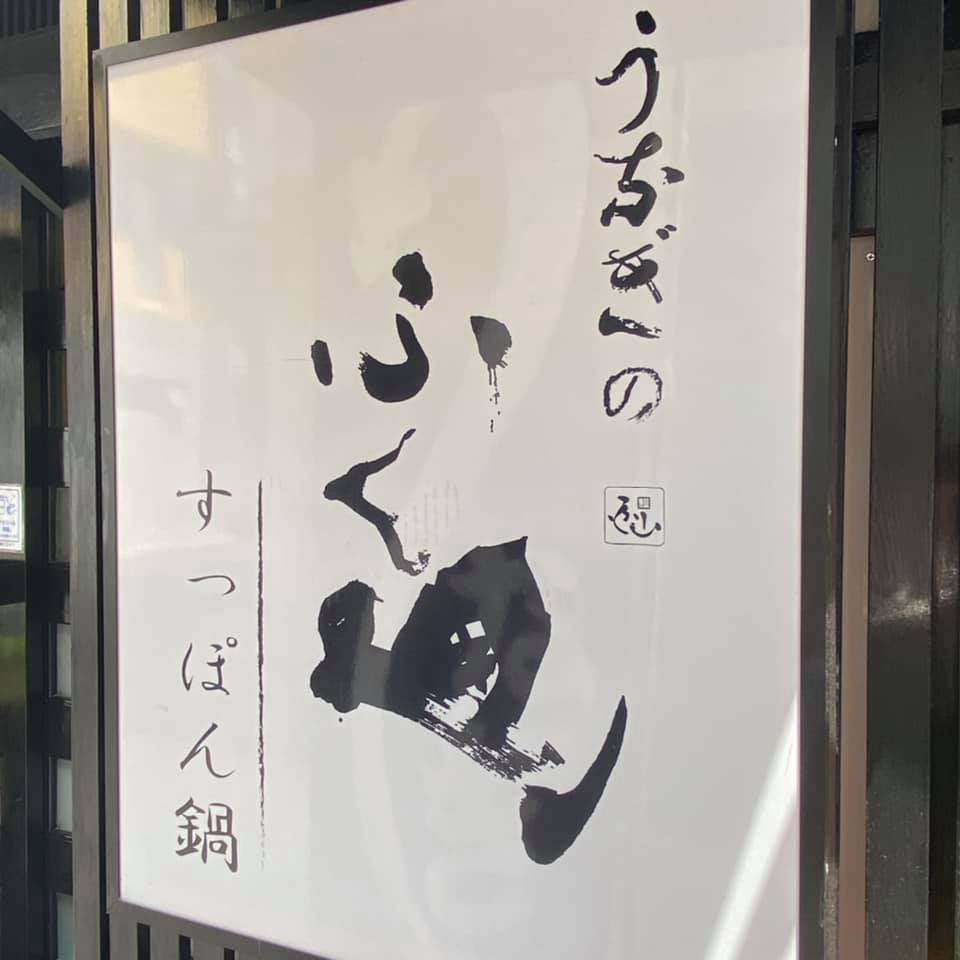 うなぎの
ふく亀
すっぽん鍋